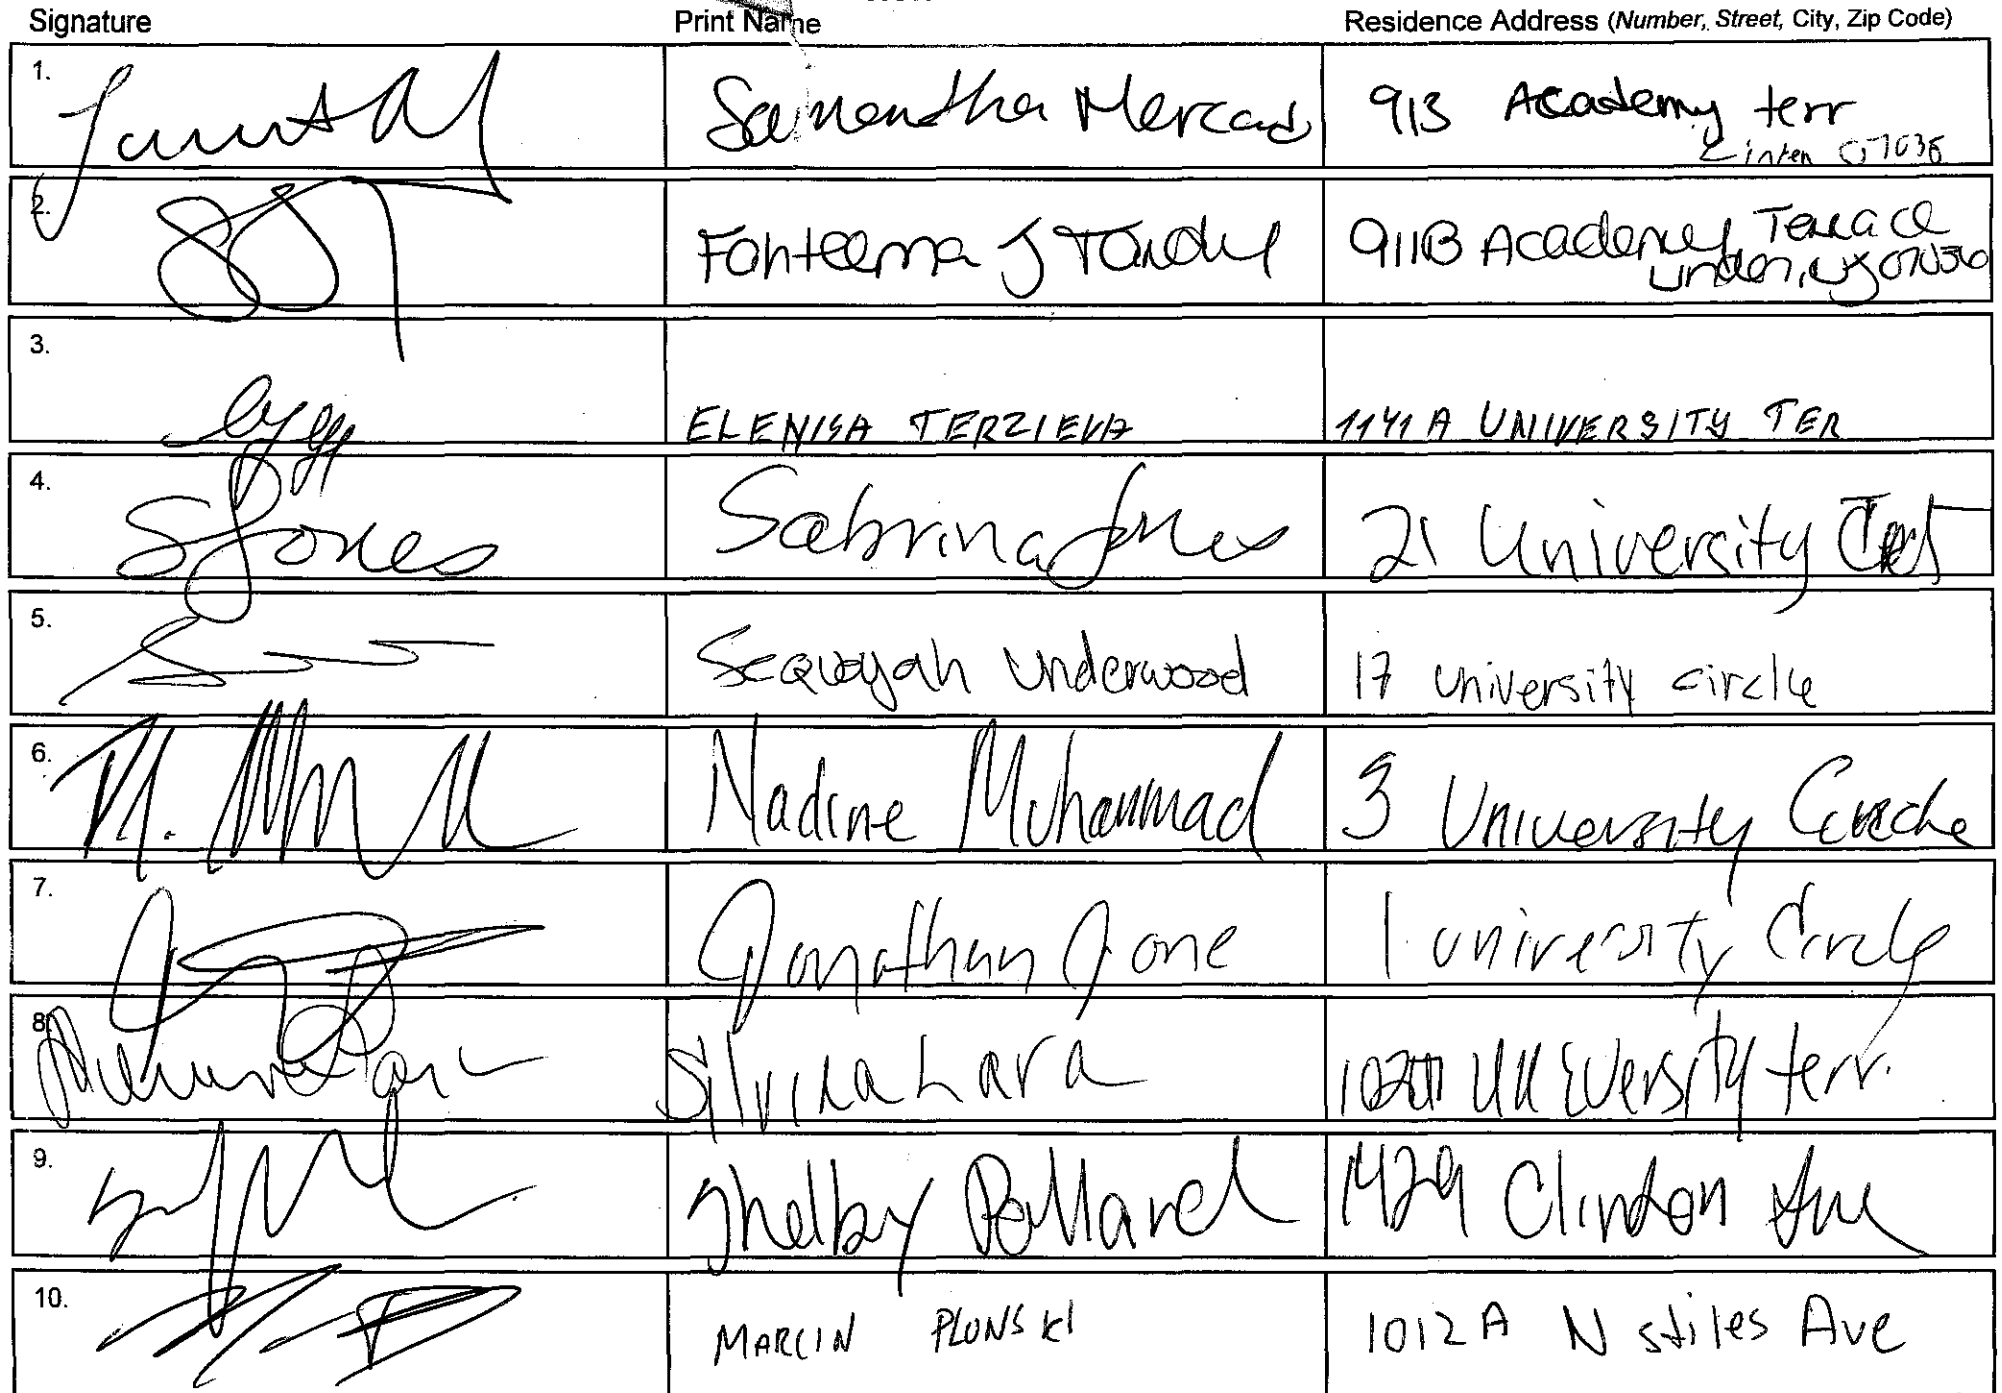 Signature Print Name Residence Address (Number, Street, City, Zip Code)
1. Samantha Mercado 913 Academy terr
Linden 07036
2. Fahteema J Tandy 911B Academy Terrace
Linden, NJ 07036
3. ELENISA TERZIEVA 1141 A UNIVERSITY TER
4. SJones Sabrina Jones 21 University
5. Sequoyah Underwood 17 University circle
6. Nadine Muhammad 3 University Circle
7. Jonathan Jone 1 University Circle
8. Silvina Lara University terr.
9. Shelby Pollard 1429 Clinton Ave
10. MARCIN PLONSKI 1012 A N stiles Ave